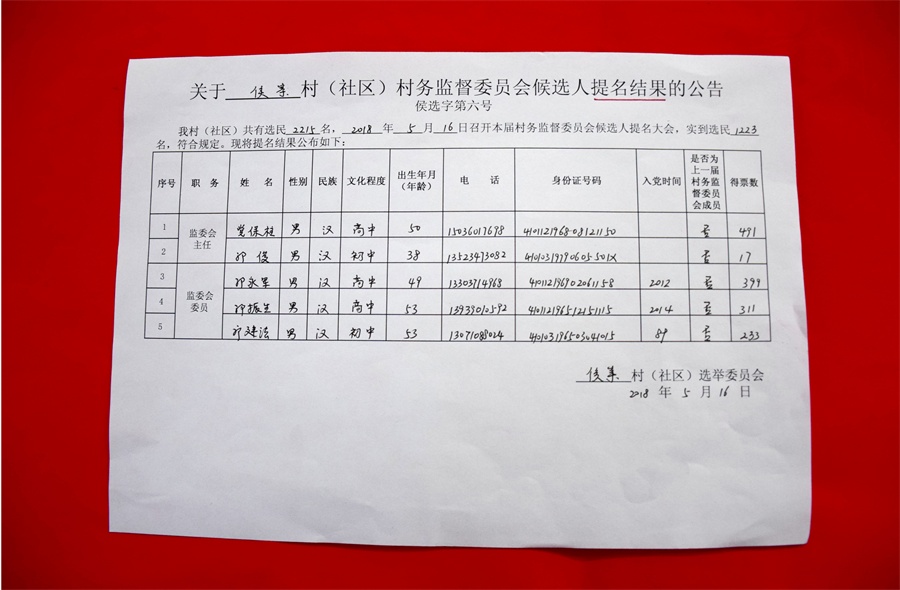 关于 侯集 村（社区）村务监督委员会候选人提名结果的公告
侯选字第六号
我村（社区）共有选民 2215 名，2018 年 5 月 16 日召开本届村务监督委员会候选人提名大会，实到选民 1223
名，符合规定。现将提名结果公布如下：
序号 职务 姓名 性别 民族 文化程度 出生年月（年龄） 电话 身份证号码 入党时间 是否为上一届村务监督委员会成员 得票数
1 监委会主任 保 男 汉 高中 50 15036017698 410112196808121150 否 491
2 俊 男 汉 初中 38 13523473082 41010319790605501X 否 17
3 监委会委员 永军 男 汉 高中 49 13303714968 410112196902061158 2012 否 399
4 振 男 汉 高中 53 13939010592 410112196512151115 2014 否 311
5 建法 男 汉 初中 53 13071088024 410103196503041015 89 否 233
侯集 村（社区）选举委员会
2018 年 5 月 16 日